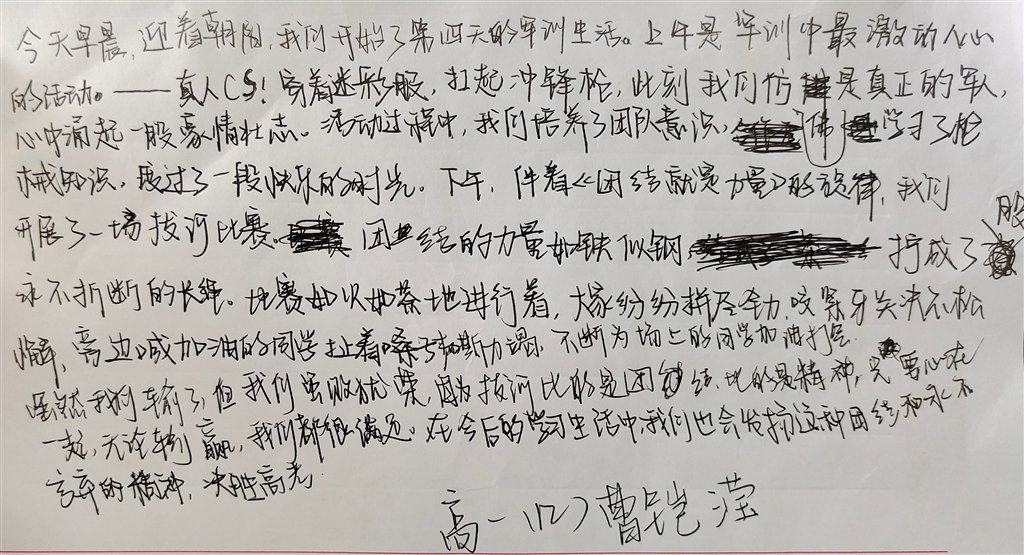 今天早晨,迎着朝阳,我们开始了第四天的军训生活。上午是军训中最激动人心
的活动。——真人CS!穿着迷彩服,扛起冲锋枪,此刻我们仿佛是真正的军人,
心中涌起一股豪情壮志。活动过程中,我们培养了团队意识,学习了枪
械知识,度过了一段快乐的时光。下午,伴着《团结就是力量》的旋律,我们
开展了一场拔河比赛。团结的力量如铁似钢,拧成了股
永不折断的长绳。比赛如火如荼地进行着,大家纷纷拼尽全力,咬紧牙关决不松
懈,旁边喊加油的同学扯着嗓子嘶斯力竭,不断为场上的同学加油打气。
虽然我们输了,但我们虽败犹荣,因为拔河比的是团结,比的是精神,只要心在
一起,无论输赢,我们都很满足。在今后的学习生活中,我们也会发扬这种团结和永不
言弃的精神,决胜高考
高一(12)曹